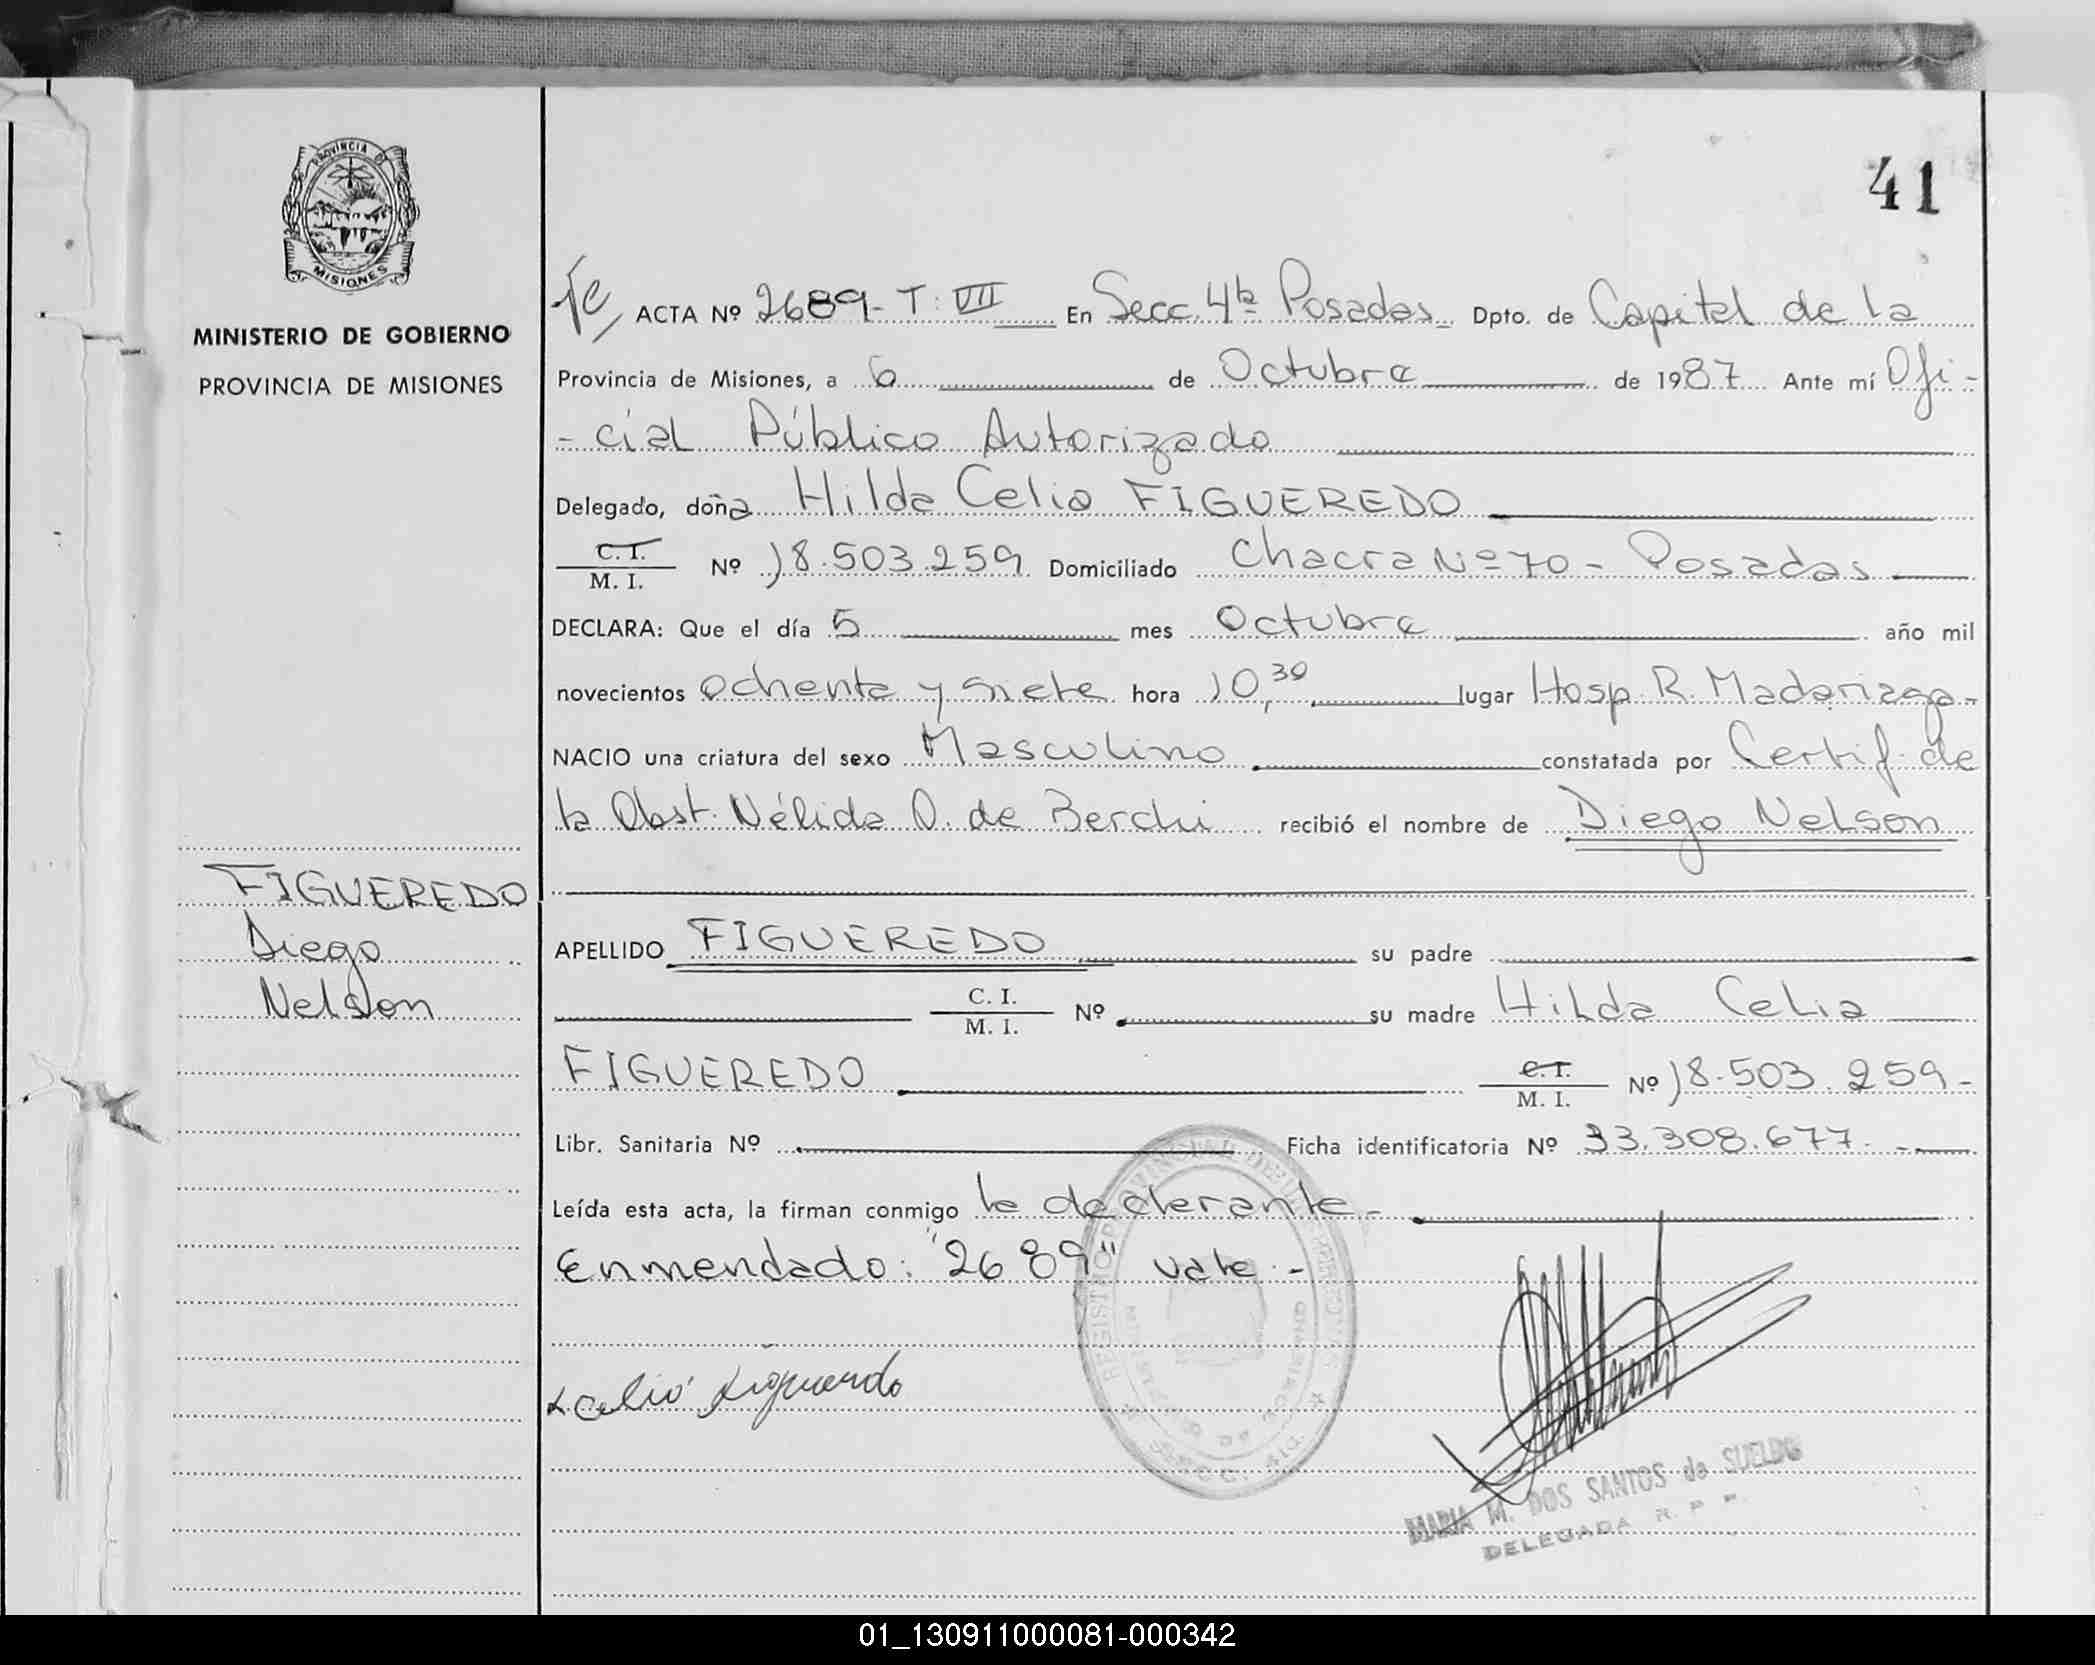 41
PROVINCIA DE
MISIONES
MINISTERIO DE GOBIERNO
PROVINCIA DE MISIONES
ACTA Nº 2689 - T: VII En Secc. 4ta Posadas Dpto. de Capital de la
Provincia de Misiones, a 6 de Octubre de 1987. Ante mí Ofi-
-cial Público Autorizado
Delegado, doña Hilda Celia FIGUEREDO
C.I.
M. I. Nº 18.503.259 Domiciliado Chacra Nº 70 - Posadas
DECLARA: Que el día 5 mes Octubre año mil
novecientos ochenta y siete hora 10,30 lugar Hosp. R. Madariaga-
NACIO una criatura del sexo Masculino constatada por Certif. de
la Obst. Nélida O. de Berchi recibió el nombre de Diego Nelson
FIGUEREDO
Diego
Nelson
APELLIDO FIGUEREDO su padre
C. I.
M. I. Nº su madre Hilda Celia
FIGUEREDO C.I.
M. I. Nº 18.503.259-
Libr. Sanitaria Nº Ficha identificatoria Nº 33.308.677.-
Leída esta acta, la firman conmigo la declarante.-
Enmendado: "2689" vale.-
Celia Figueredo
REGISTRO PROVINCIAL DE LAS PERSONAS
MARIA M. DOS SANTOS de SUELDO
DELEGADA R. P. P.
01_130911000081-000342